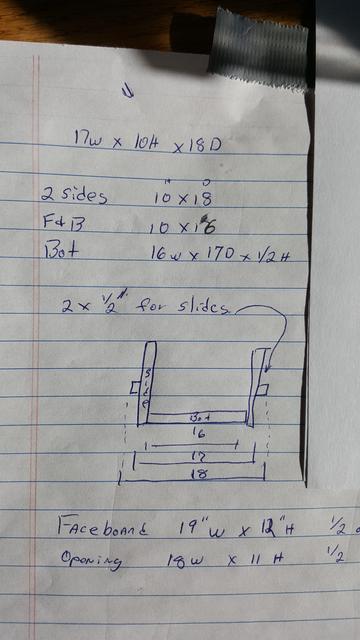 17w x 10H x 18D
H D
2 sides 10 x 18
F+B 10 x 16
Bot 16w x 17D x 1/2 H
2 x 1/2" for slides
side
Bot
16
17
18
Faceboard 19"w x 12"H 1/2
Opening 18w x 11 H 1/2